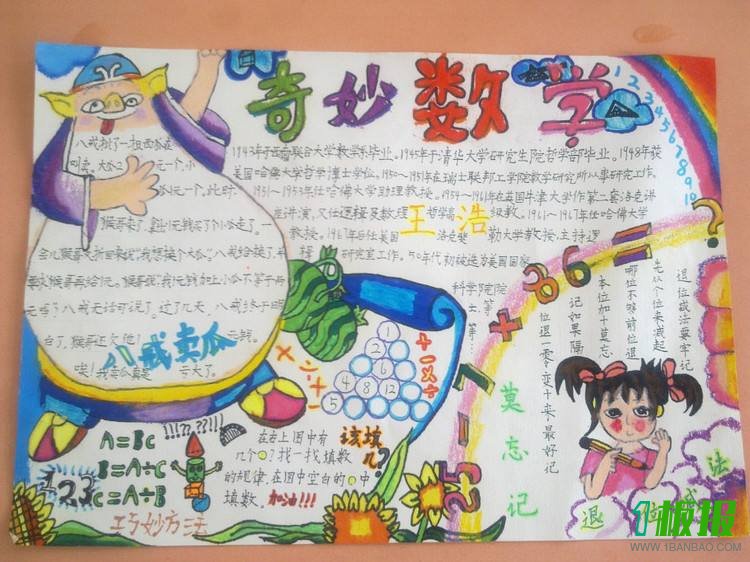 奇妙数学
八戒批了一担西瓜在
叫卖。大瓜2元一个,小
瓜1元一个,此时,
猴哥来了,拿出1元钱买了个小瓜走了。
會儿猴哥又折回来说:“我想换个大瓜,”八戒给换了,
1元钱加上小瓜不等于两
元吗?八戒无话可说了,过了几天,八戒终于明
白了,猴哥还欠他1元钱。
唉!我卖瓜真是亏大了。
八戒卖瓜
1943年于西南联合大学数学系毕业。1945年于清华大学研究生院哲学部毕业。1948年获
美国哈佛大学哲学博士学位。1950~1951年在瑞士联邦工学院数学研究所从事研究工作。
1951~1953年任哈佛大学助理教授。1954~1961年在英国牛津大学作第二套洛克讲
座讲演,又任逻辑及数理哲学高级教。1961~1967年任哈佛大学
教授。1967年后任美国洛克斐勒大学教授,主持逻
辑研究室工作。50年代初被选为美国国家
科学院院
士,等
等
王浩
1 2 3 4 5 6 7 8 9 10
25-7+86=?
退位减法要牢记
先从个位来减起
哪位不够前位退
本位加十莫忘
记如果隔
位退一零变十来,最好记
莫忘记
退位减法
1
2
6
4 8 12
5
+-×÷
A=BC
B=A÷C
C=A÷B
123
!!!??,???
巧妙方法
在右上图中有
几个○?找一找,填数
的规律,在图中空白的○中
填数。
加油!!!
该填
几?
1板报
WWW.1BANBAO.COM